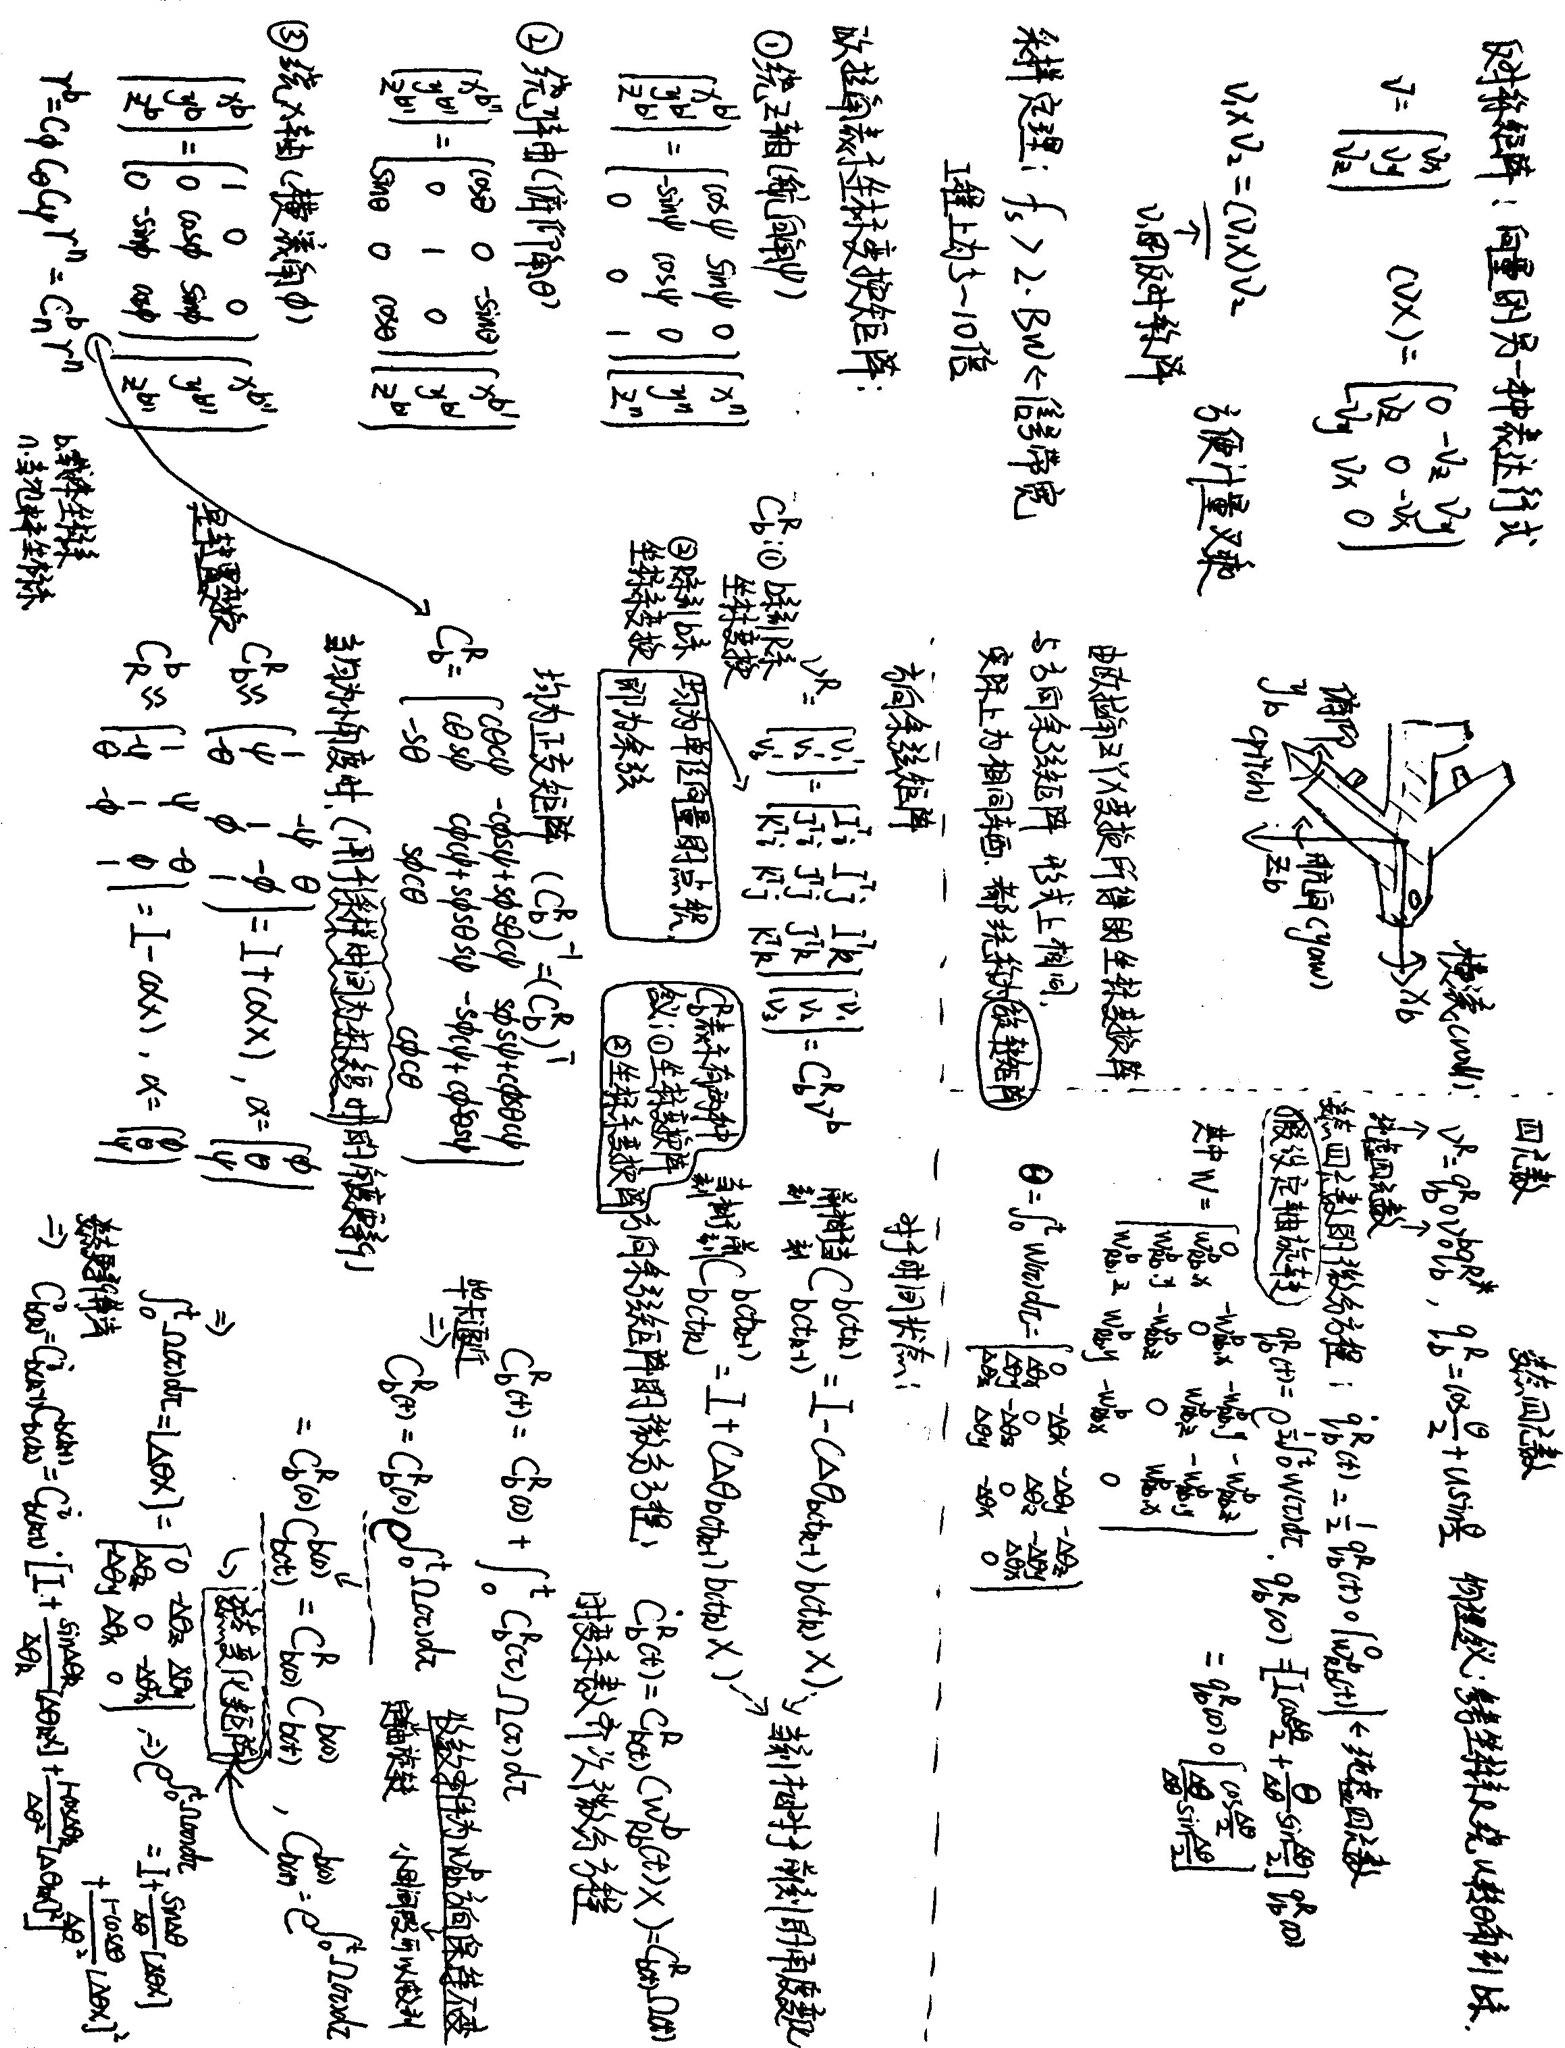 反对称矩阵：向量的另一种表达形式
V = [Vx Vy Vz] (V×) = [0 -Vz Vy
Vz 0 -Vx
-Vy Vx 0]
V₁×V₂ = (V₁×)V₂ 方便计量叉乘
↑
V₁的反对称阵
采样定理：fs > 2·BW ← 信号带宽
工程上为5~10倍
欧拉角表示坐标变换矩阵：
① 绕Z轴（航向角ψ）
[x^b' y^b' z^b'] = [cosψ sinψ 0
-sinψ cosψ 0
0 0 1] [x^n y^n z^n]
② 绕y轴（俯仰角θ）
[x^b'' y^b'' z^b''] = [cosθ 0 -sinθ
0 1 0
sinθ 0 cosθ] [x^b' y^b' z^b']
③ 绕X轴（横滚角φ）
[x^b y^b z^b] = [1 0 0
0 cosφ sinφ
0 -sinφ cosφ] [x^b'' y^b'' z^b'']
r^b = Cφ Cθ Cψ r^n = C_n^b r^n
b.载体坐标系
n.当地水平坐标系
俯仰 (pitch) y_b
航向 (yaw) z_b
横滚 (roll) x_b
由欧拉角ZYX变换所得的坐标变换阵
与方向余弦矩阵 形式上相同,
实际上为相同东西.都统称为旋转矩阵
方向余弦矩阵
V^R = [V₁' V₂' V₃'] = [I^T i I^T j I^T k
J^T i J^T j J^T k
K^T i K^T j K^T k] [V₁ V₂ V₃] = C_b^R V^b
C_b^R: ① b系到R系
坐标变换
② R系到b系
坐标系变换
均为单位向量的点积,
即为余弦
C_b^R表示有两种
含义：① 坐标变换阵
② 坐标系变换阵
均为正交矩阵 (C_b^R)^-1 = (C_b^R)^T
C_b^R = [cθcψ -cφsψ+sφsθcψ sφsψ+cφsθcψ
cθsψ cφcψ+sφsθsψ -sφcψ+cφsθsψ
-sθ sφcθ cφcθ]
当均为小角度时,（用于采样时间为极短时的角度更新）
C_b^R ≈ [1 -ψ θ
ψ 1 -φ
-θ φ 1] = I + (α×), α = [φ θ ψ]
是转置变换
C_R^b ≈ [1 ψ -θ
-ψ 1 φ
θ -φ 1] = I - (α×), α = [φ θ ψ]
四元数 姿态四元数
V^R = q_b^R ∘ V^b ∘ q_b^R*, q_b^R = cos θ/2 + u sin θ/2 物理意义：参考坐标系R绕u转θ角到b系.
↑ ↑
纯虚四元数
姿态四元数的微分方程：q̇_b^R(t) = 1/2 q_b^R(t) ∘ [0 w_Rb^b(t)] ← 纯虚四元数
假设定轴旋转 q_b^R(t) = e^(1/2 ∫₀^t W(τ)dτ) · q_b^R(0) = [I cos Δθ/2 + Θ/Δθ sin Δθ/2] q_b^R(0)
= q_b^R(0) ∘ [cos Δθ/2 Δθ/Δθ sin Δθ/2]
其中 W = [0 -w_Rb,x^b -w_Rb,y^b -w_Rb,z^b
w_Rb,x^b 0 w_Rb,z^b -w_Rb,y^b
w_Rb,y^b -w_Rb,z^b 0 w_Rb,x^b
w_Rb,z^b w_Rb,y^b -w_Rb,x^b 0]
Θ = ∫₀^t W(τ)dτ = [0 -Δθx -Δθy -Δθz
Δθx 0 Δθz -Δθy
Δθy -Δθz 0 Δθx
Δθz Δθy -Δθx 0]
对于时间状态：
C_b(tk+1)^b(tk) = I - (Δθ_b(tk+1)b(tk) ×)
C_b(tk)^b(tk+1) = I + (Δθ_b(tk+1)b(tk) ×) → 当前相对于前刻的角度变化
方向余弦矩阵的微分方程：
Ċ_b^R(t) = C_b(t)^R (w_Rb^b(t)×) = C_b(t)^R Ω(t)
时变系数齐次微分方程
C_b^R(t) = C_b^R(0) + ∫₀^t C_b^R(τ)Ω(τ)dτ
毕卡逼近
⇒ C_b^R(t) = C_b^R(0) e^(∫₀^t Ω(τ)dτ)
收敛条件为w_Rb^b方向保持不变
定轴旋转 小时间段可以成立
= C_b^R(0) C_b(t)^b(0) = C_b(0)^R C_b(t)^b(0), C_b(t)^b(0) = e^(∫₀^t Ω(τ)dτ)
姿态变化矩阵
⇒ ∫₀^t Ω(τ)dτ = [Δθ×] = [0 -Δθz Δθy
Δθz 0 -Δθx
-Δθy Δθx 0] ⇒ e^(∫₀^t Ω(τ)dτ) = I + sinΔθ/Δθ [Δθ×] + (1-cosΔθ)/Δθ² [Δθ×]²
姿态更新算法
⇒ C_b(k)^i = C_b(k-1)^i C_b(k)^b(k-1) = C_b(k-1)^i · [I + sinΔθk/Δθk [Δθk×] + (1-cosΔθk)/Δθk² [Δθk×]²]